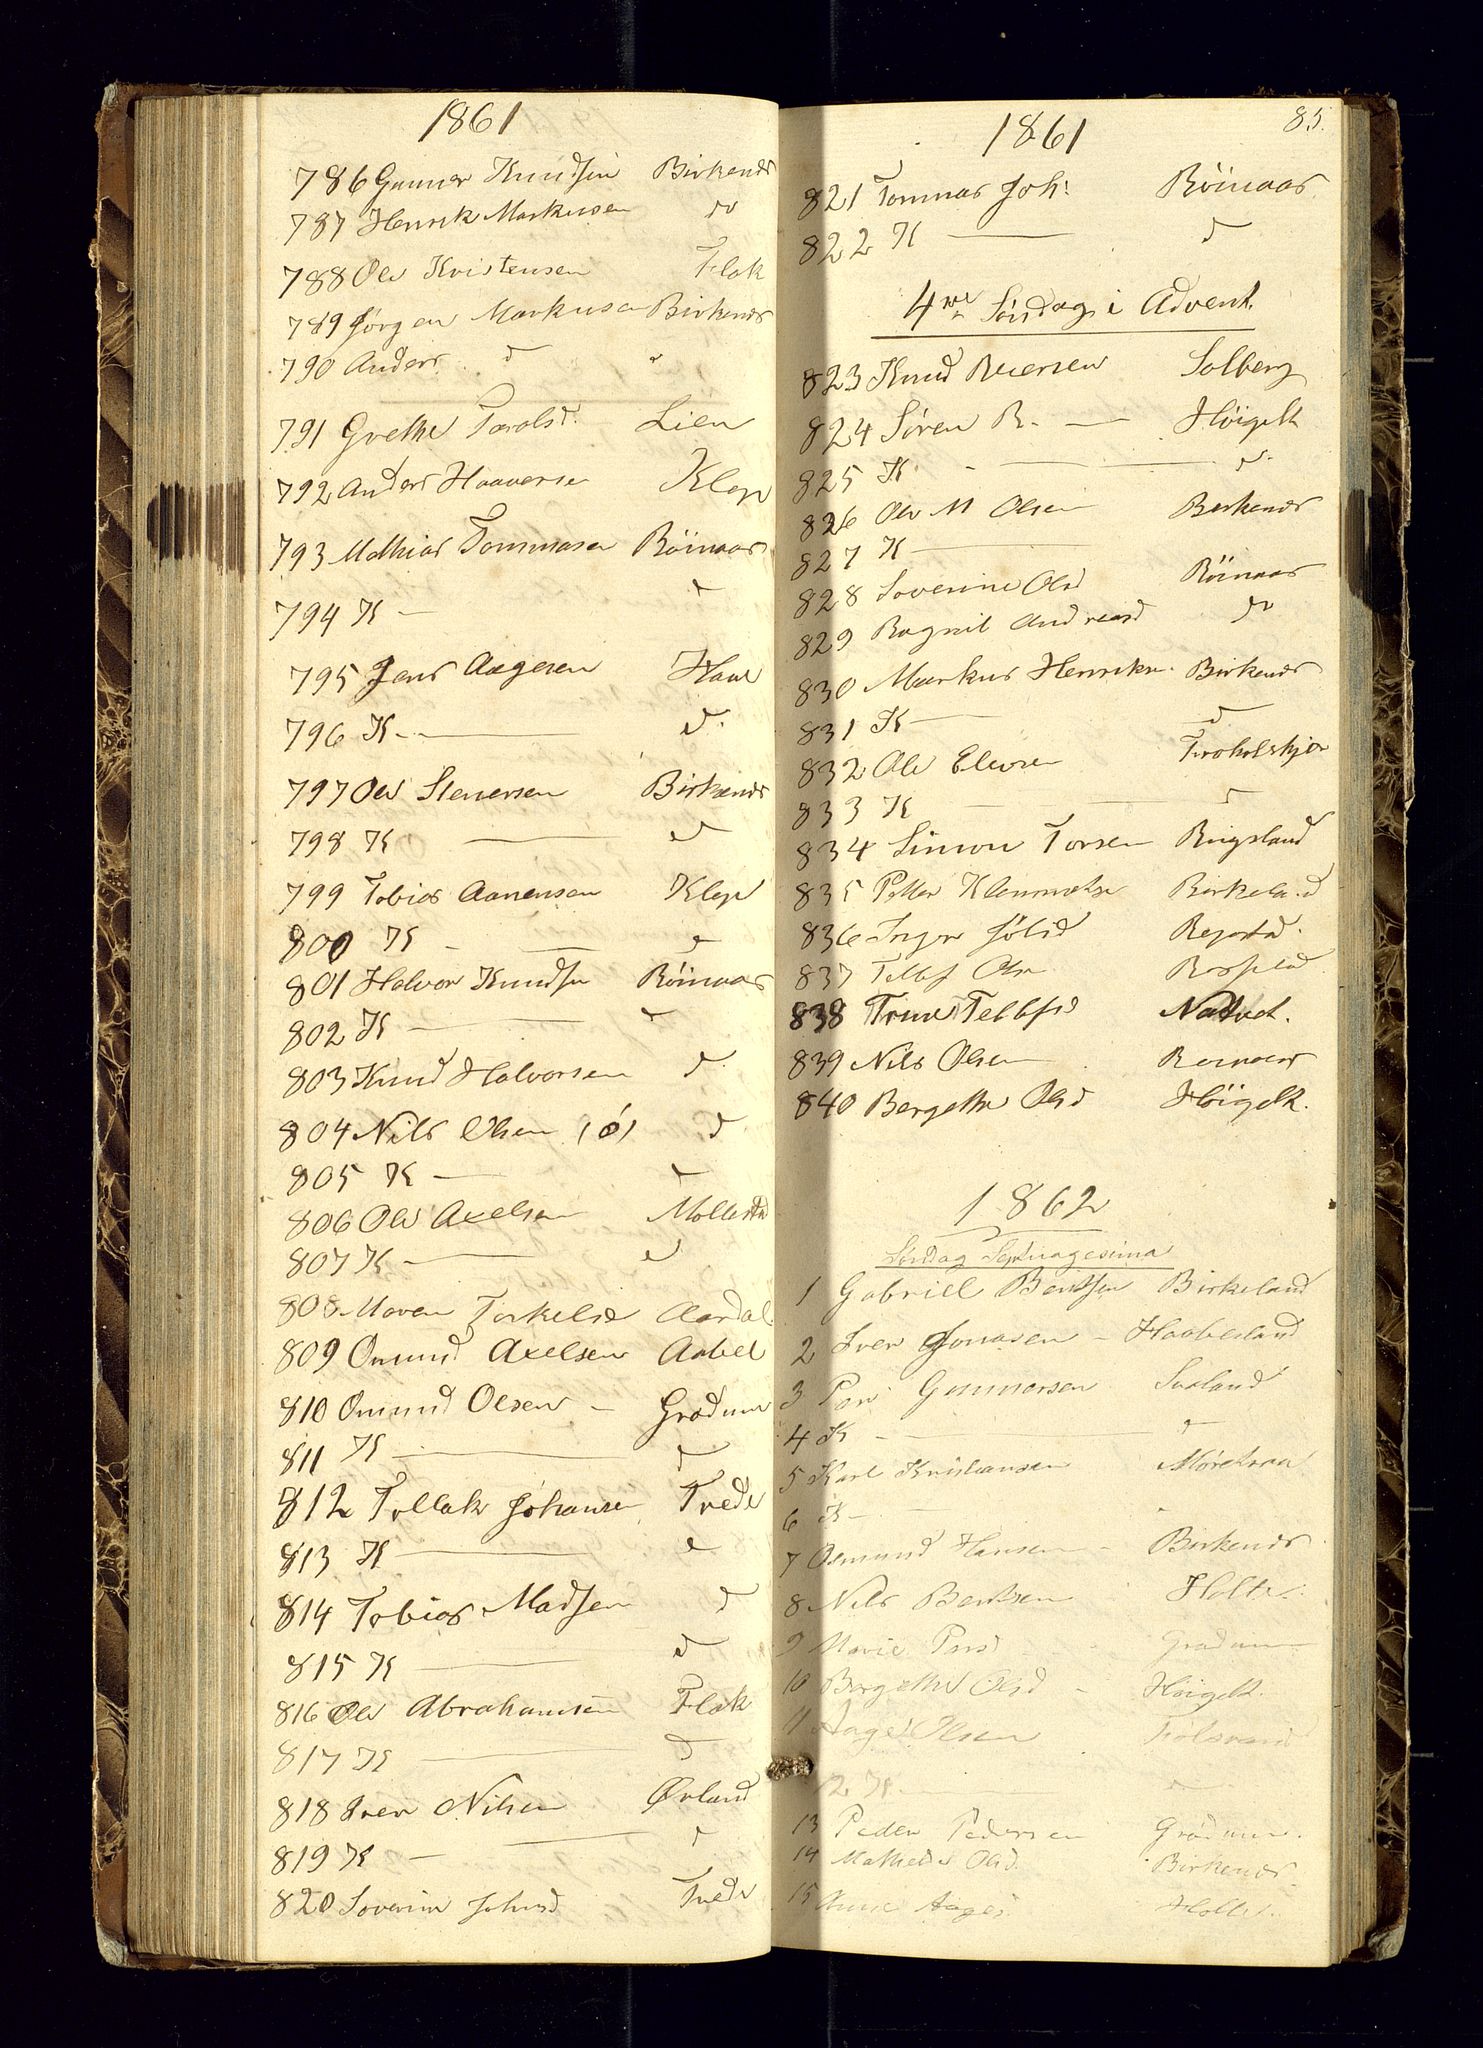 1861
786 Gunner Knudsen Birkenes
787 Henrik Markusen do
788 Ole Kristensen Flak
789 Jørgen Markusen Birkenes
790 Anders d "
791 Grethe Tarolsd. Lien
792 Anders Haaversen Klep
793 Mathias Tommasen Röinaas
794 K — d
795 Jens Aagesen Have
796 K — d
797 Ole Stenersen Birkenes
798 K — d
799 Tobias Aanensen Klep
800 K — d
801 Halvor Knudsen Röinaas
802 K — d
803 Knud Halvorsen d
804 Nils Olsen (ö) d
805 K — d
806 Ole Axelsen Mollestad
807 K — d
808 Maren Torkelsd Aardal
809 Omund Axelsen Aabel
810 Omund Olsen — Grødum
811 K — d
812 Tollak Johansen Trede
813 K — d
814 Tobias Madsen d
815 K — d
816 Ole Abrahamsen Flak
817 K — d
818 Iver Nilsen Øvland
819 K — d
820 Soverin Johnsd Trede
1861 85.
821 Tommas Joh: Röinaas
822 K — d
4de Søndag i Advent.
823 Knud Reiersen Solberg
824 Søren R. — Høigelt
825 K — d.
826 Ole M Olsen Berkenes
827 K —
828 Soverine Olsd Röinaas
829 Ragnil Andreasd do
830 Markus Henrikn. Birkenes
831 K — d
832 Ole Elevsen
833 K — d
834 Simon Torsen Ringsland
835 Petter Klemmetse Birkeland
836 Inger
837 Tellef Olsn
838 Trine Tellefsd Natvet.
839 Nils Olsen Reinaas
840 Bergethe Olsd Høigelt.
1862
Søndag Septuagesima
1 Gabriell Bentsen Birkeland
2 Iver Jonasen — Haabesland
3 Per Gunnarsen Svaland
4 K — d
5 Karl Kristiansen
6 K — "
7 Osmund Hansen — Birkenes
8 Nils Bentsen Holte.
9 Marie Persd Grødum
10 Bergethe Olsd — Høigelt.
11 Aage Olsen
12 K. — d
13 Peder Pedersen Grødum.
14 Mathede Olsd. Birkenes.
15 Anne Aages. Holte.